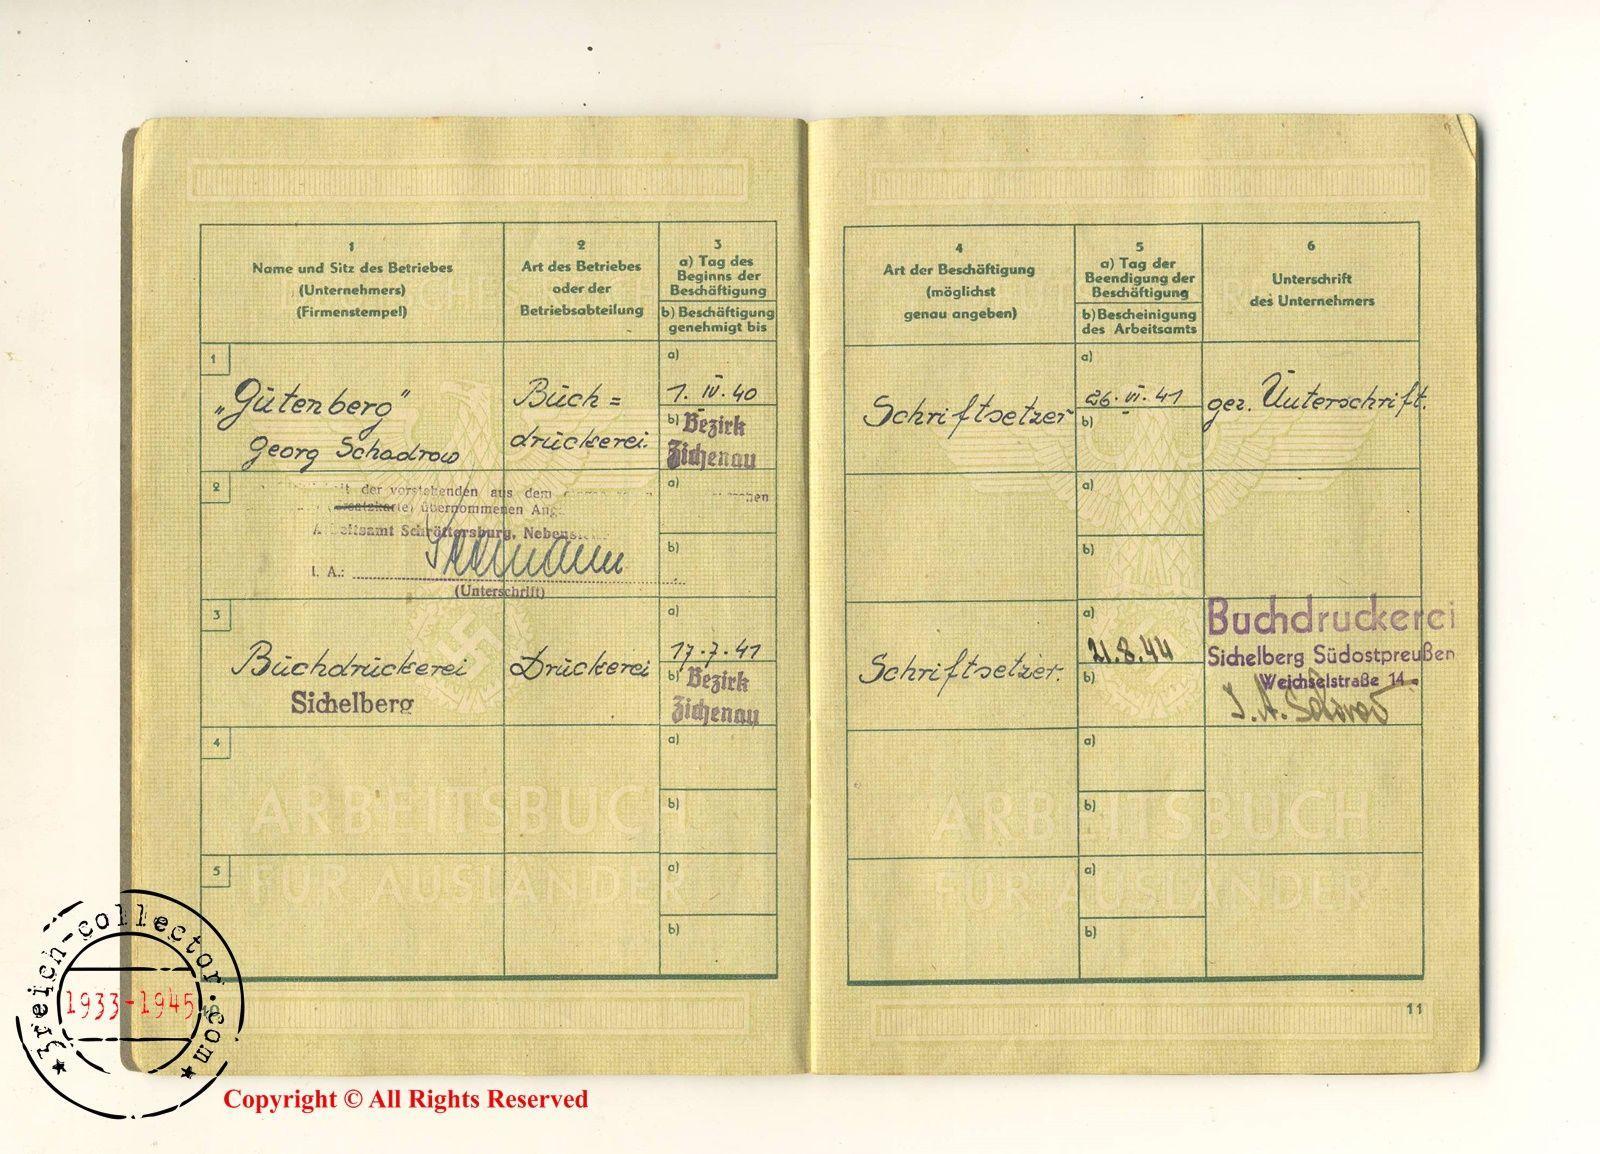 1
Name und Sitz des Betriebes
(Unternehmers)
(Firmenstempel)
2
Art des Betriebes
oder der
Betriebsabteilung
3
a) Tag des
Beginns der
Beschäftigung
b) Beschäftigung
genehmigt bis
1
„Gutenberg"
Georg Schadrow
Buch=
druckerei.
a)
1. IV. 40
b) Bezirk
Zichenau
2
der vorstehenden aus dem
übernommenen
Arbeitsamt Schröttersburg,
I. A.:
(Unterschrift)
a)
b)
3
Buchdruckerei
Sichelberg
Druckerei
a)
17.7.41
b) Bezirk
Zichenau
4
a)
b)
5
a)
b)
ARBEITSBUCH
FÜR AUSLÄNDER
4
Art der Beschäftigung
(möglichst
genau angeben)
5
a) Tag der
Beendigung der
Beschäftigung
b) Bescheinigung
des Arbeitsamts
6
Unterschrift
des Unternehmers
Schriftsetzer
a)
26.VI.41
b)
gez. Unterschrift.
a)
b)
Schriftsetzer.
a)
21.8.44
b)
Buchdruckerei
Sichelberg Südostpreußen
Weichselstraße 14
I.A.
a)
b)
a)
b)
ARBEITSBUCH
FÜR AUSLÄNDER
11
3reich-collector.com
1933-1945
Copyright © All Rights Reserved